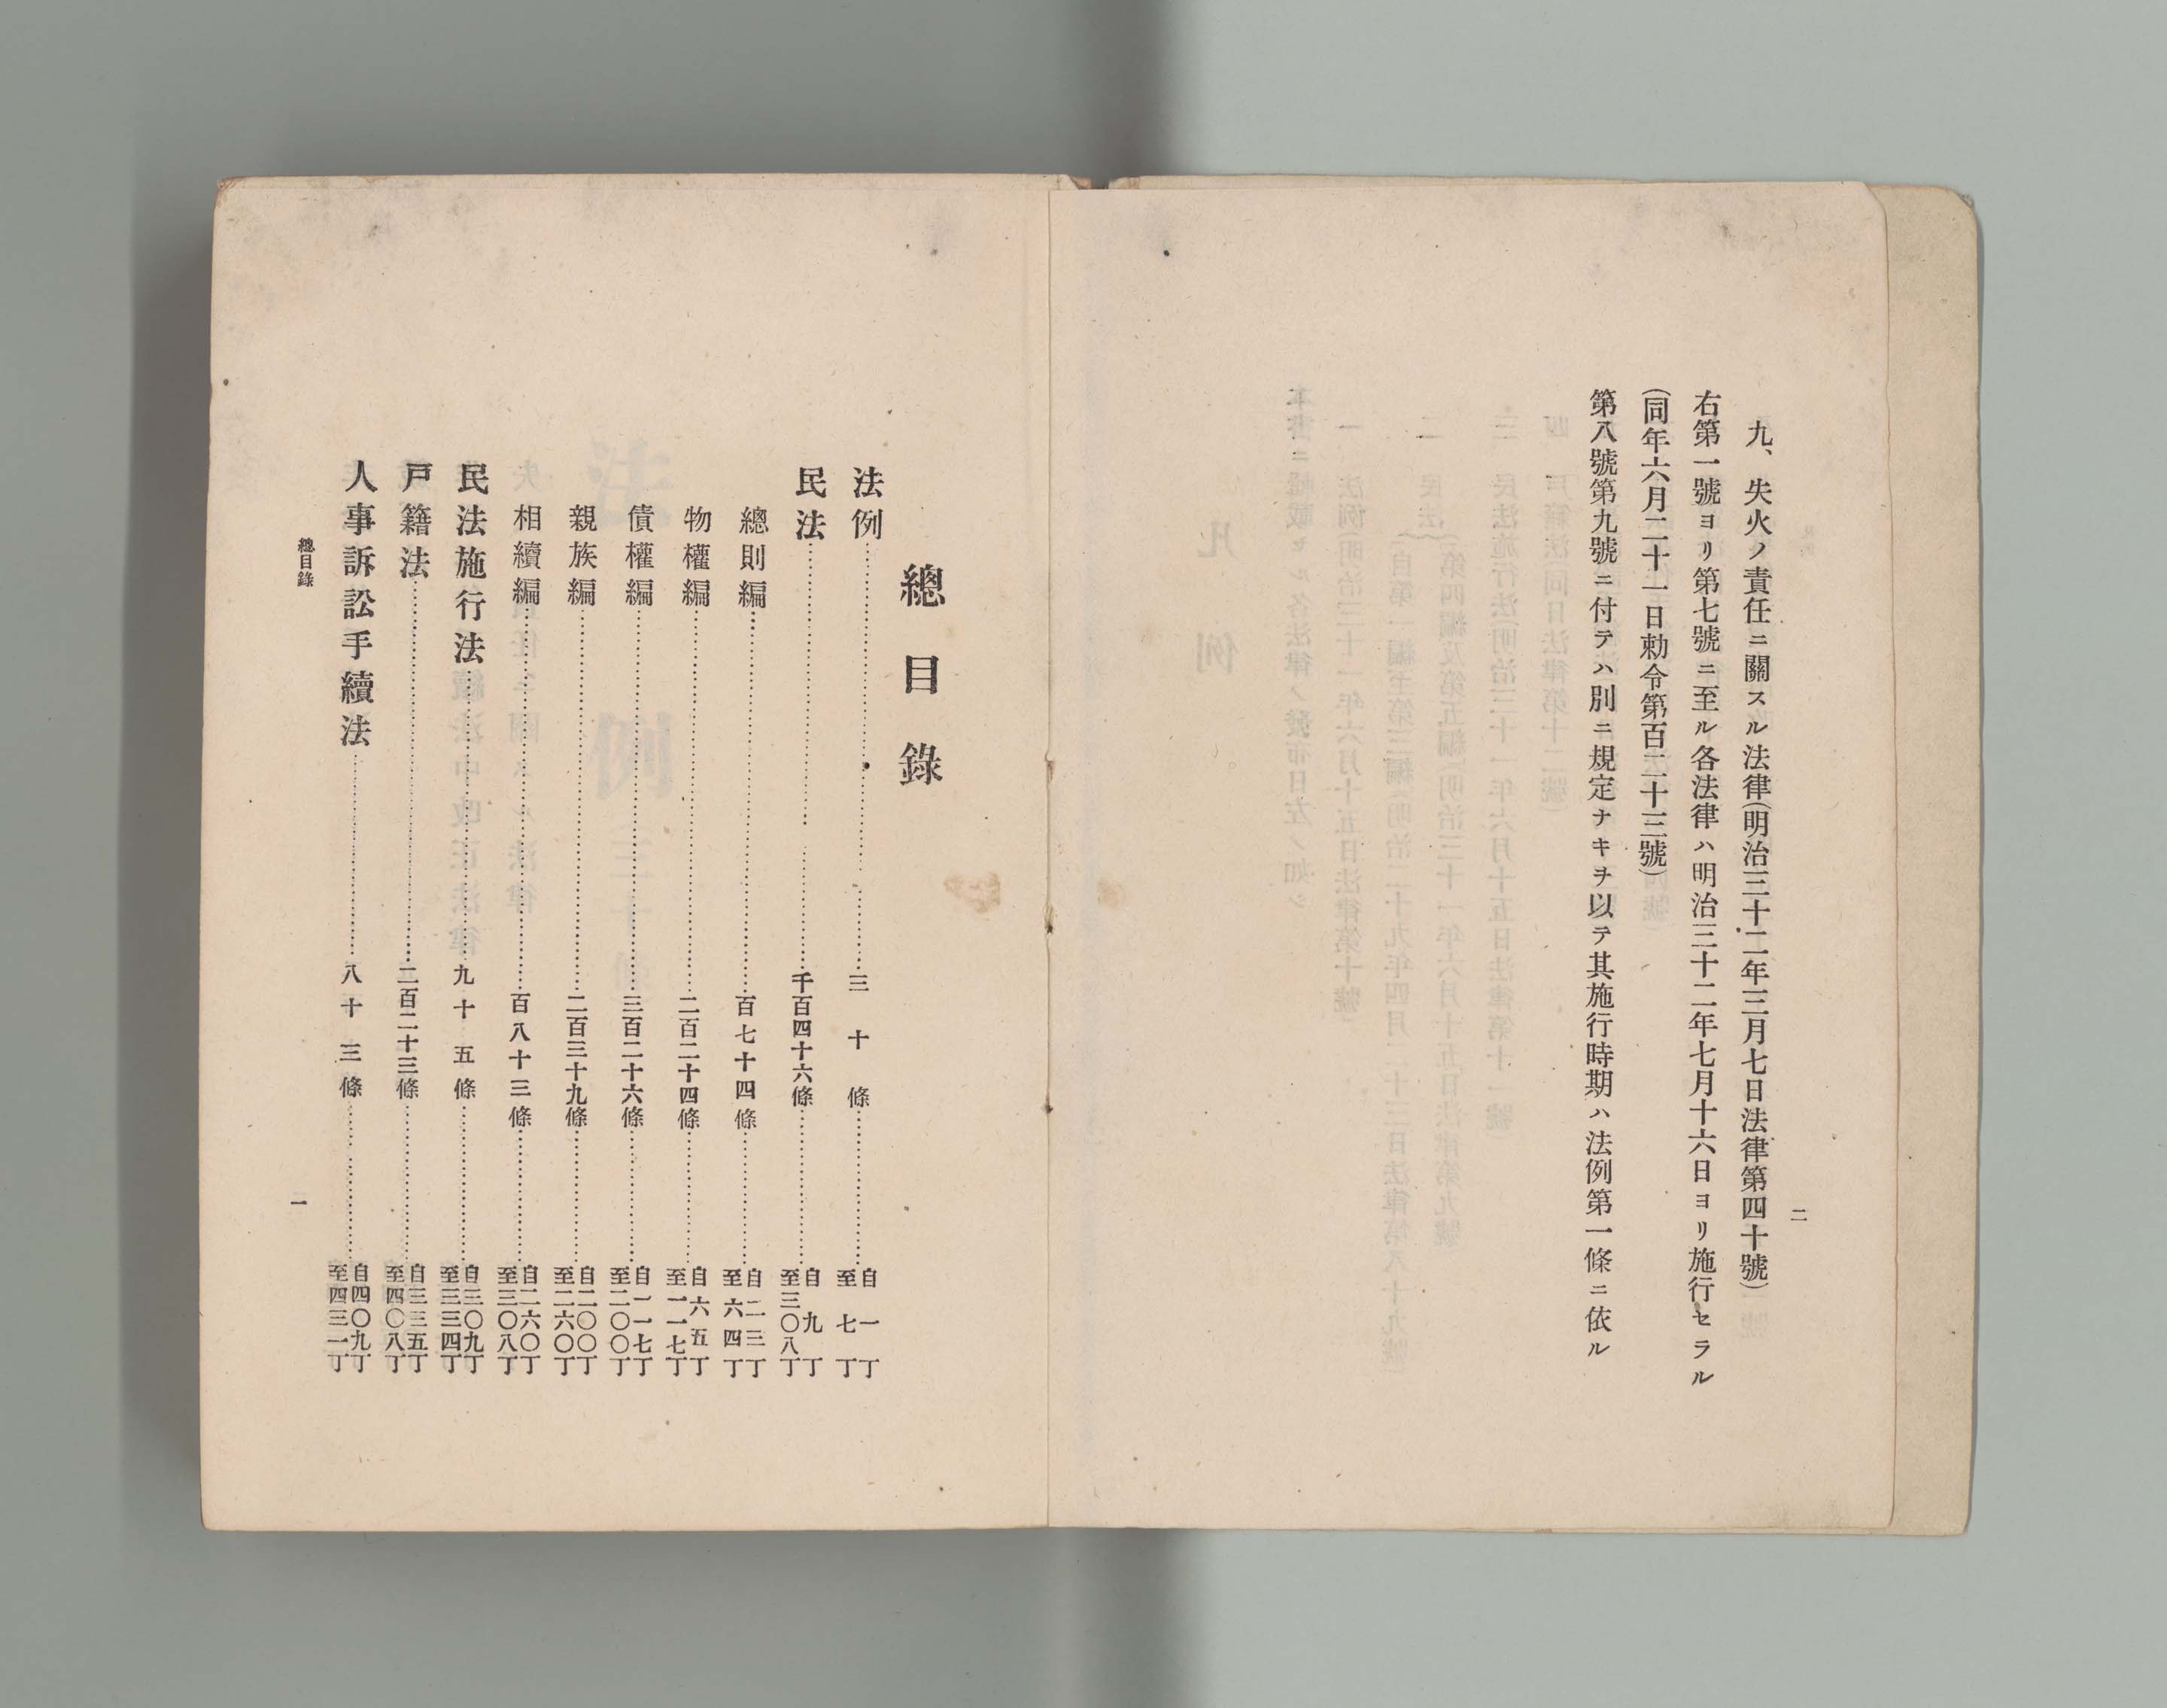 二
九、失火ノ責任ニ關スル法律(明治三十二年三月七日法律第四十號)
右第一號ヨリ第七號ニ至ル各法律ハ明治三十二年七月十六日ヨリ施行セラル
(同年六月二十一日勅令第百二十三號)
第八號第九號ニ付テハ別ニ規定ナキヲ以テ其施行時期ハ法例第一條ニ依ル
總目錄
法例………三十條………自一丁至七丁
民法………千百四十六條………自九丁至三〇八丁
總則編………百七十四條………自二三丁至六四丁
物權編………二百二十四條………自六五丁至一一七丁
債權編………三百二十六條………自一一七丁至二〇〇丁
親族編………二百三十九條………自二〇〇丁至二六〇丁
相續編………百八十三條………自二六〇丁至三〇八丁
民法施行法………九十五條………自三〇九丁至三三四丁
戸籍法………二百二十三條………自三三五丁至四〇八丁
人事訴訟手續法………八十三條………自四〇九丁至四三一丁
總目錄
一